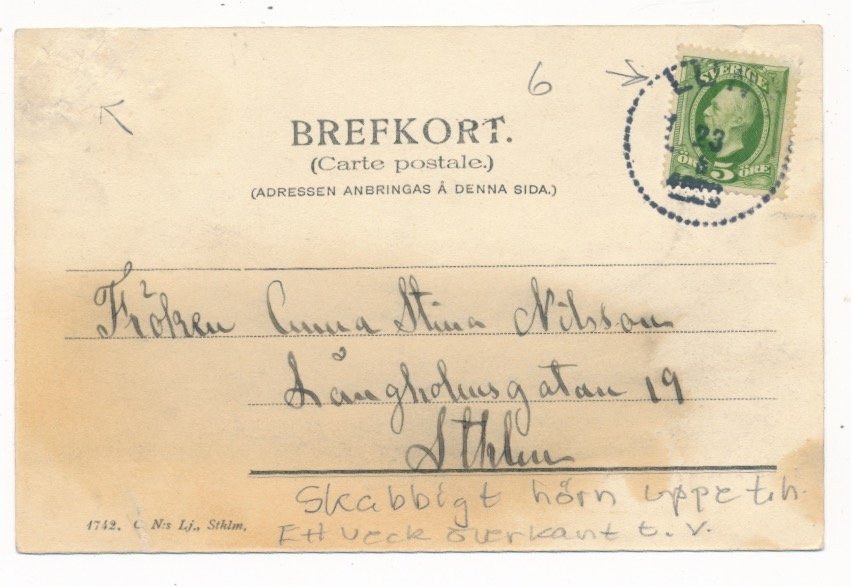 6
BREFKORT.
(Carte postale.)
(ADRESSEN ANBRINGAS Å DENNA SIDA.)
SVERIGE
23
5
ÖRE 5 ÖRE
Fröken Anna Stina Nilsson
Långholmsgatan 19
Sthlm
Skabbigt hörn uppe t.h.
Ett veck överkant t.v.
4742. C. N:s Lj., Sthlm.